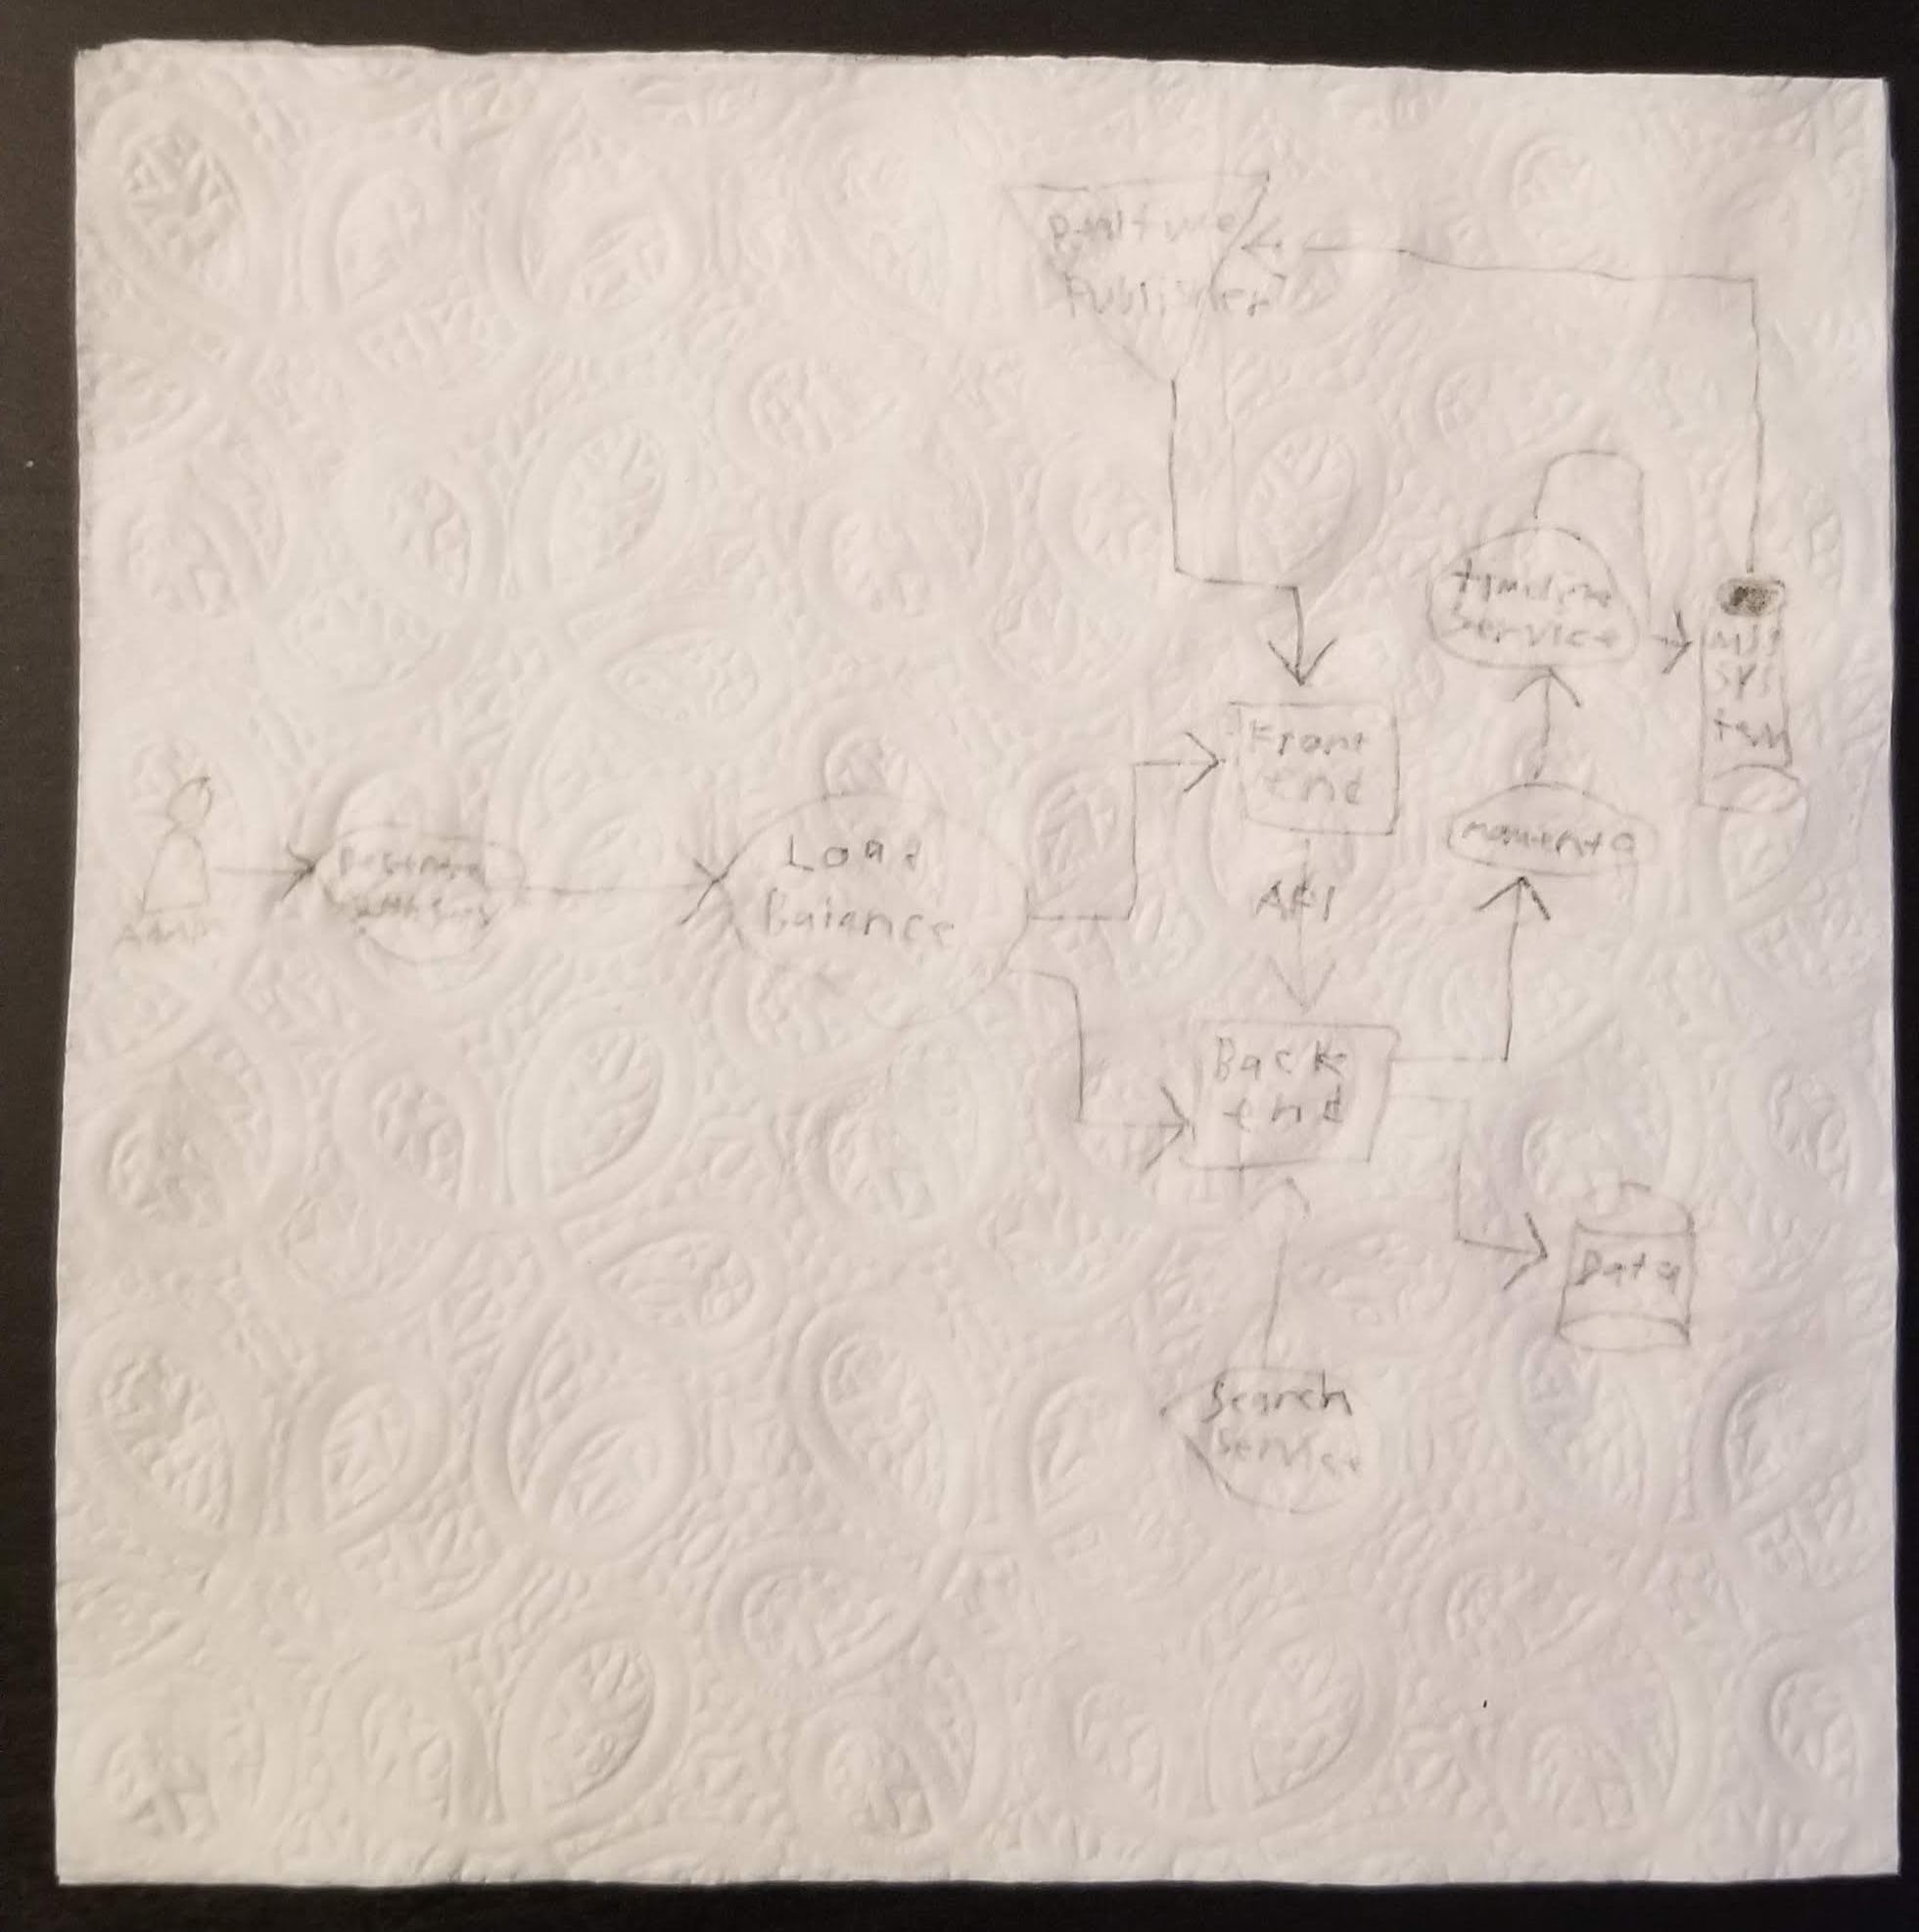 Realtime
Publisher
timeline
Service
MSG
SYS
tem
Front
end
momento
Load
Balance
Admin
API
Back
end
Data
Search
Service